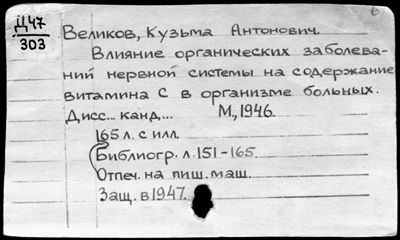 Д47
303
Великов, Кузьма Антонович.
Влияние органических заболева-
ний нервной системы на содержание
витамина С в организме больных.
Дисс... канд... М., 1946.
165 л. с илл.
Библиогр. л. 151-165.
Отпеч. на пиш. маш.
Защ. в 1947.